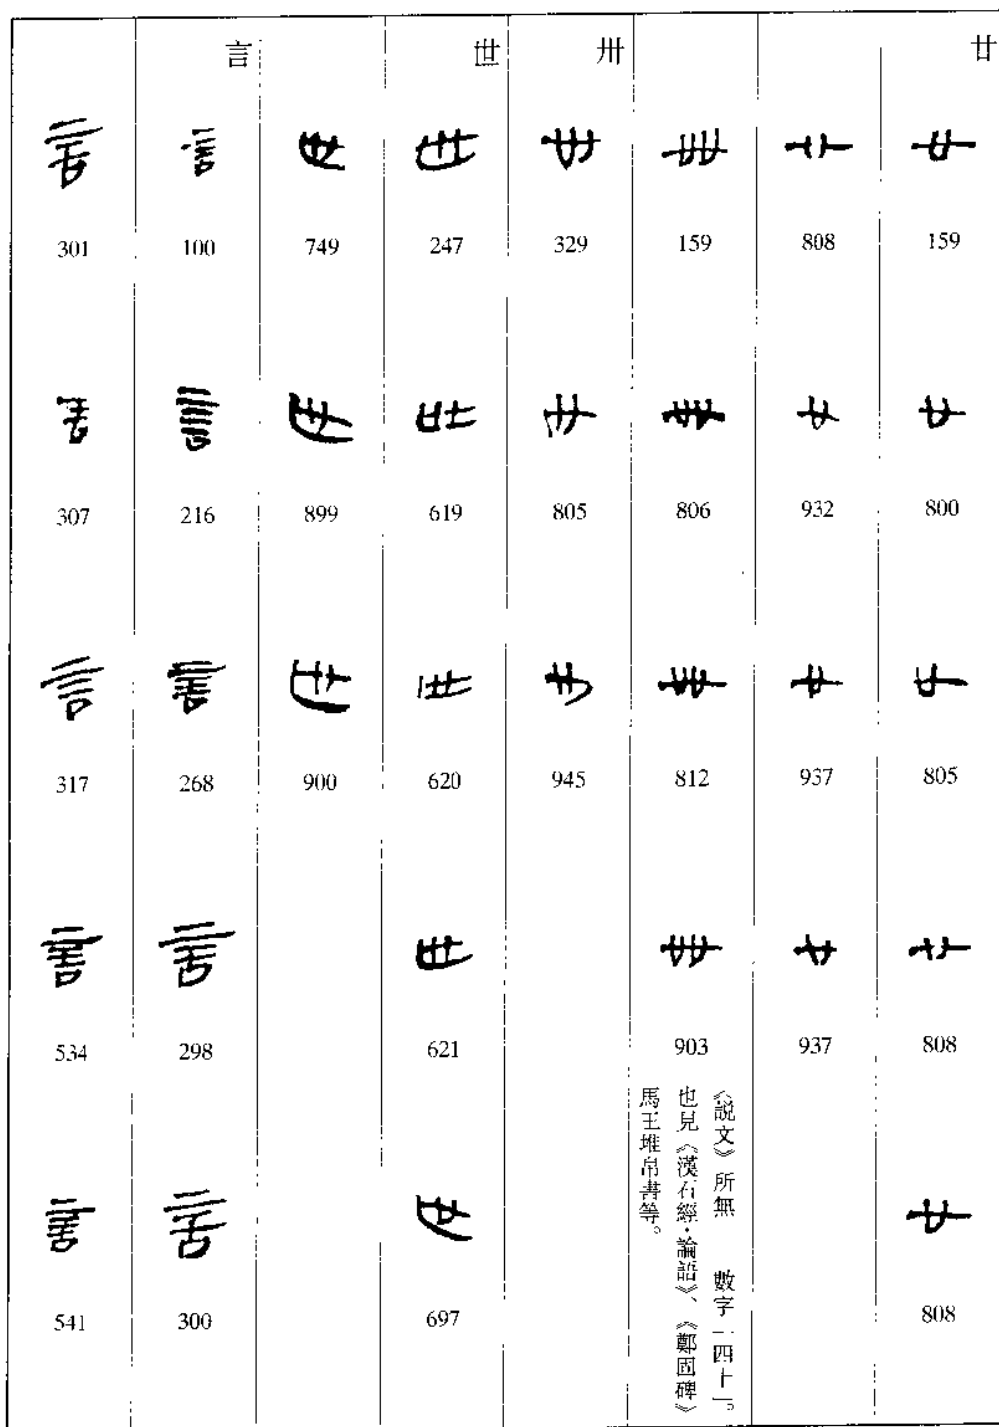 廿
159
800
805
808
808
808
932
937
937
159
806
812
903
《説文》所無　數字「四十」。
也見《漢石經·論語》、《鄭固碑》
馬王堆帛書等。
卅
329
805
945
世
247
619
620
621
697
749
899
900
言
100
216
268
298
300
301
307
317
534
541